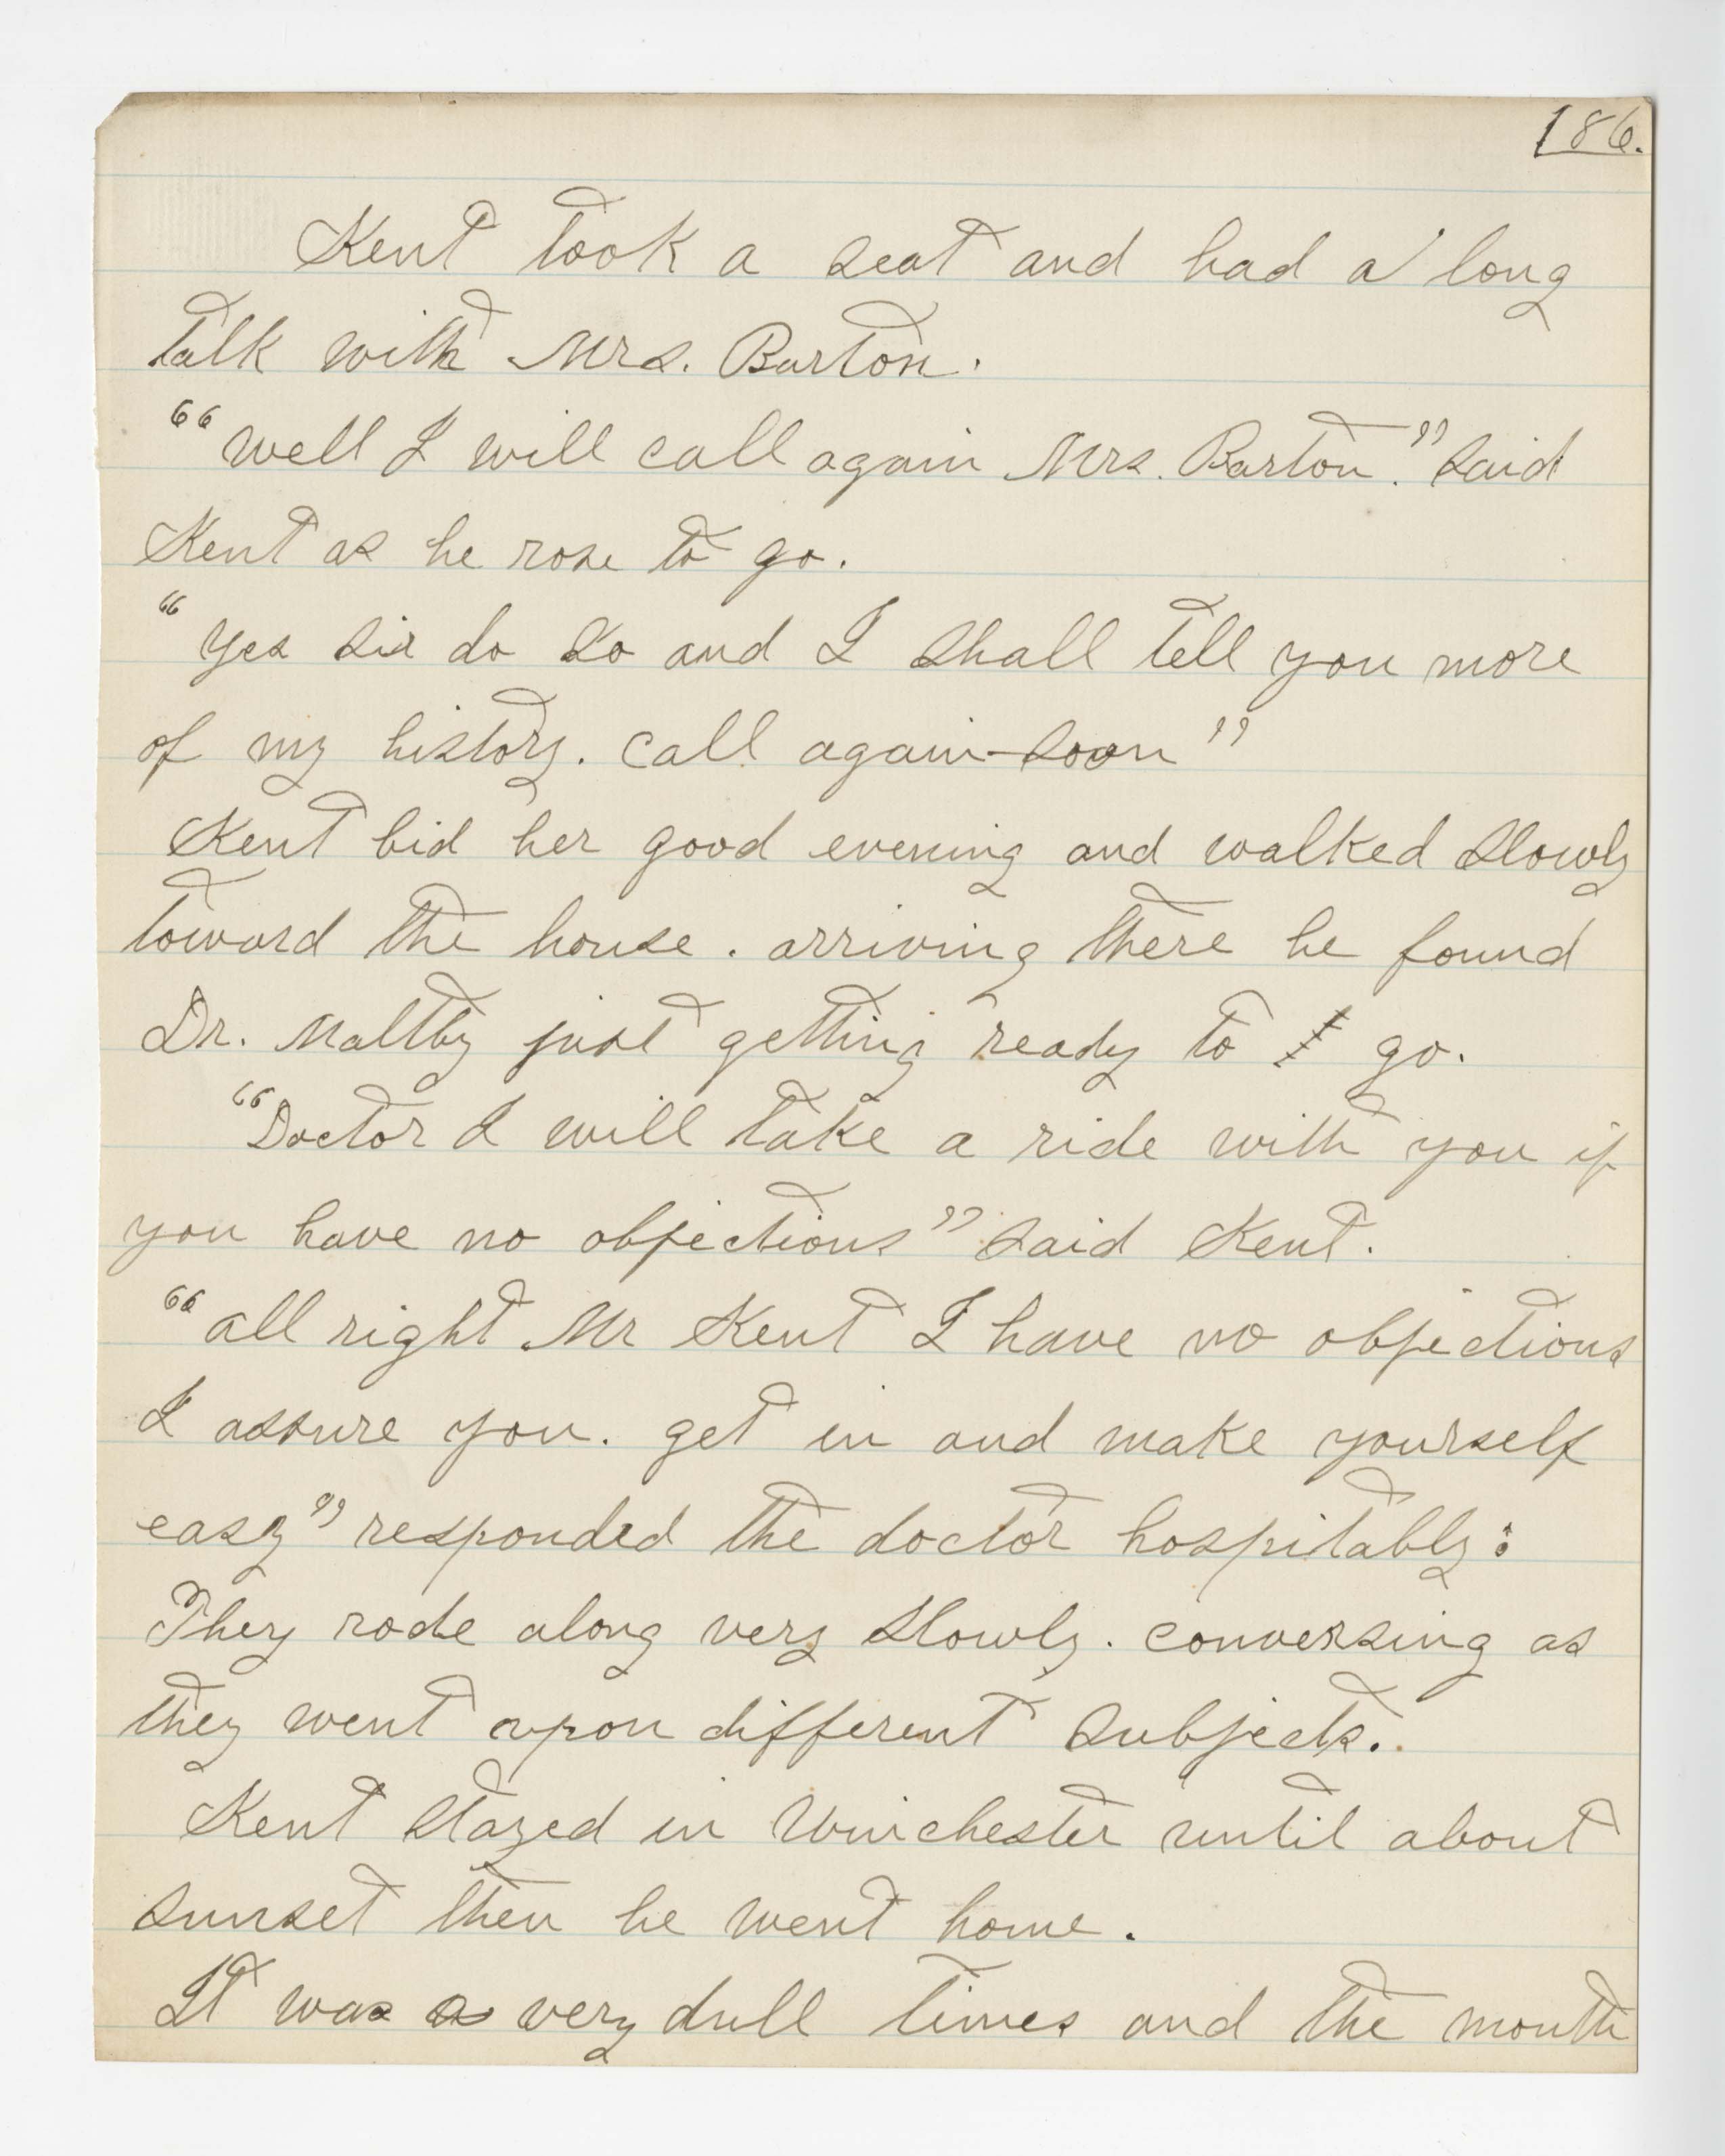 186.
Kent took a seat and had a long
talk with Mrs. Barton.
"well I will call again Mrs. Barton." said
Kent as he rose to go.
"yes sir do so and I shall tell you more
of my history. call again soon"
Kent bid her good evening and walked slowly
toward the house. arriving there he found
Dr. Maltby just getting ready to go.
"Doctor I will take a ride with you if
you have no objections" said Kent.
"all right Mr Kent I have no objections
I assure you. get in and make yourself
easy" responded the doctor hospitably:
They rode along very slowly. conversing as
they went upon different subjects.
Kent stayed in Winchester until about
sunset then he went home.
It was very dull times and the month